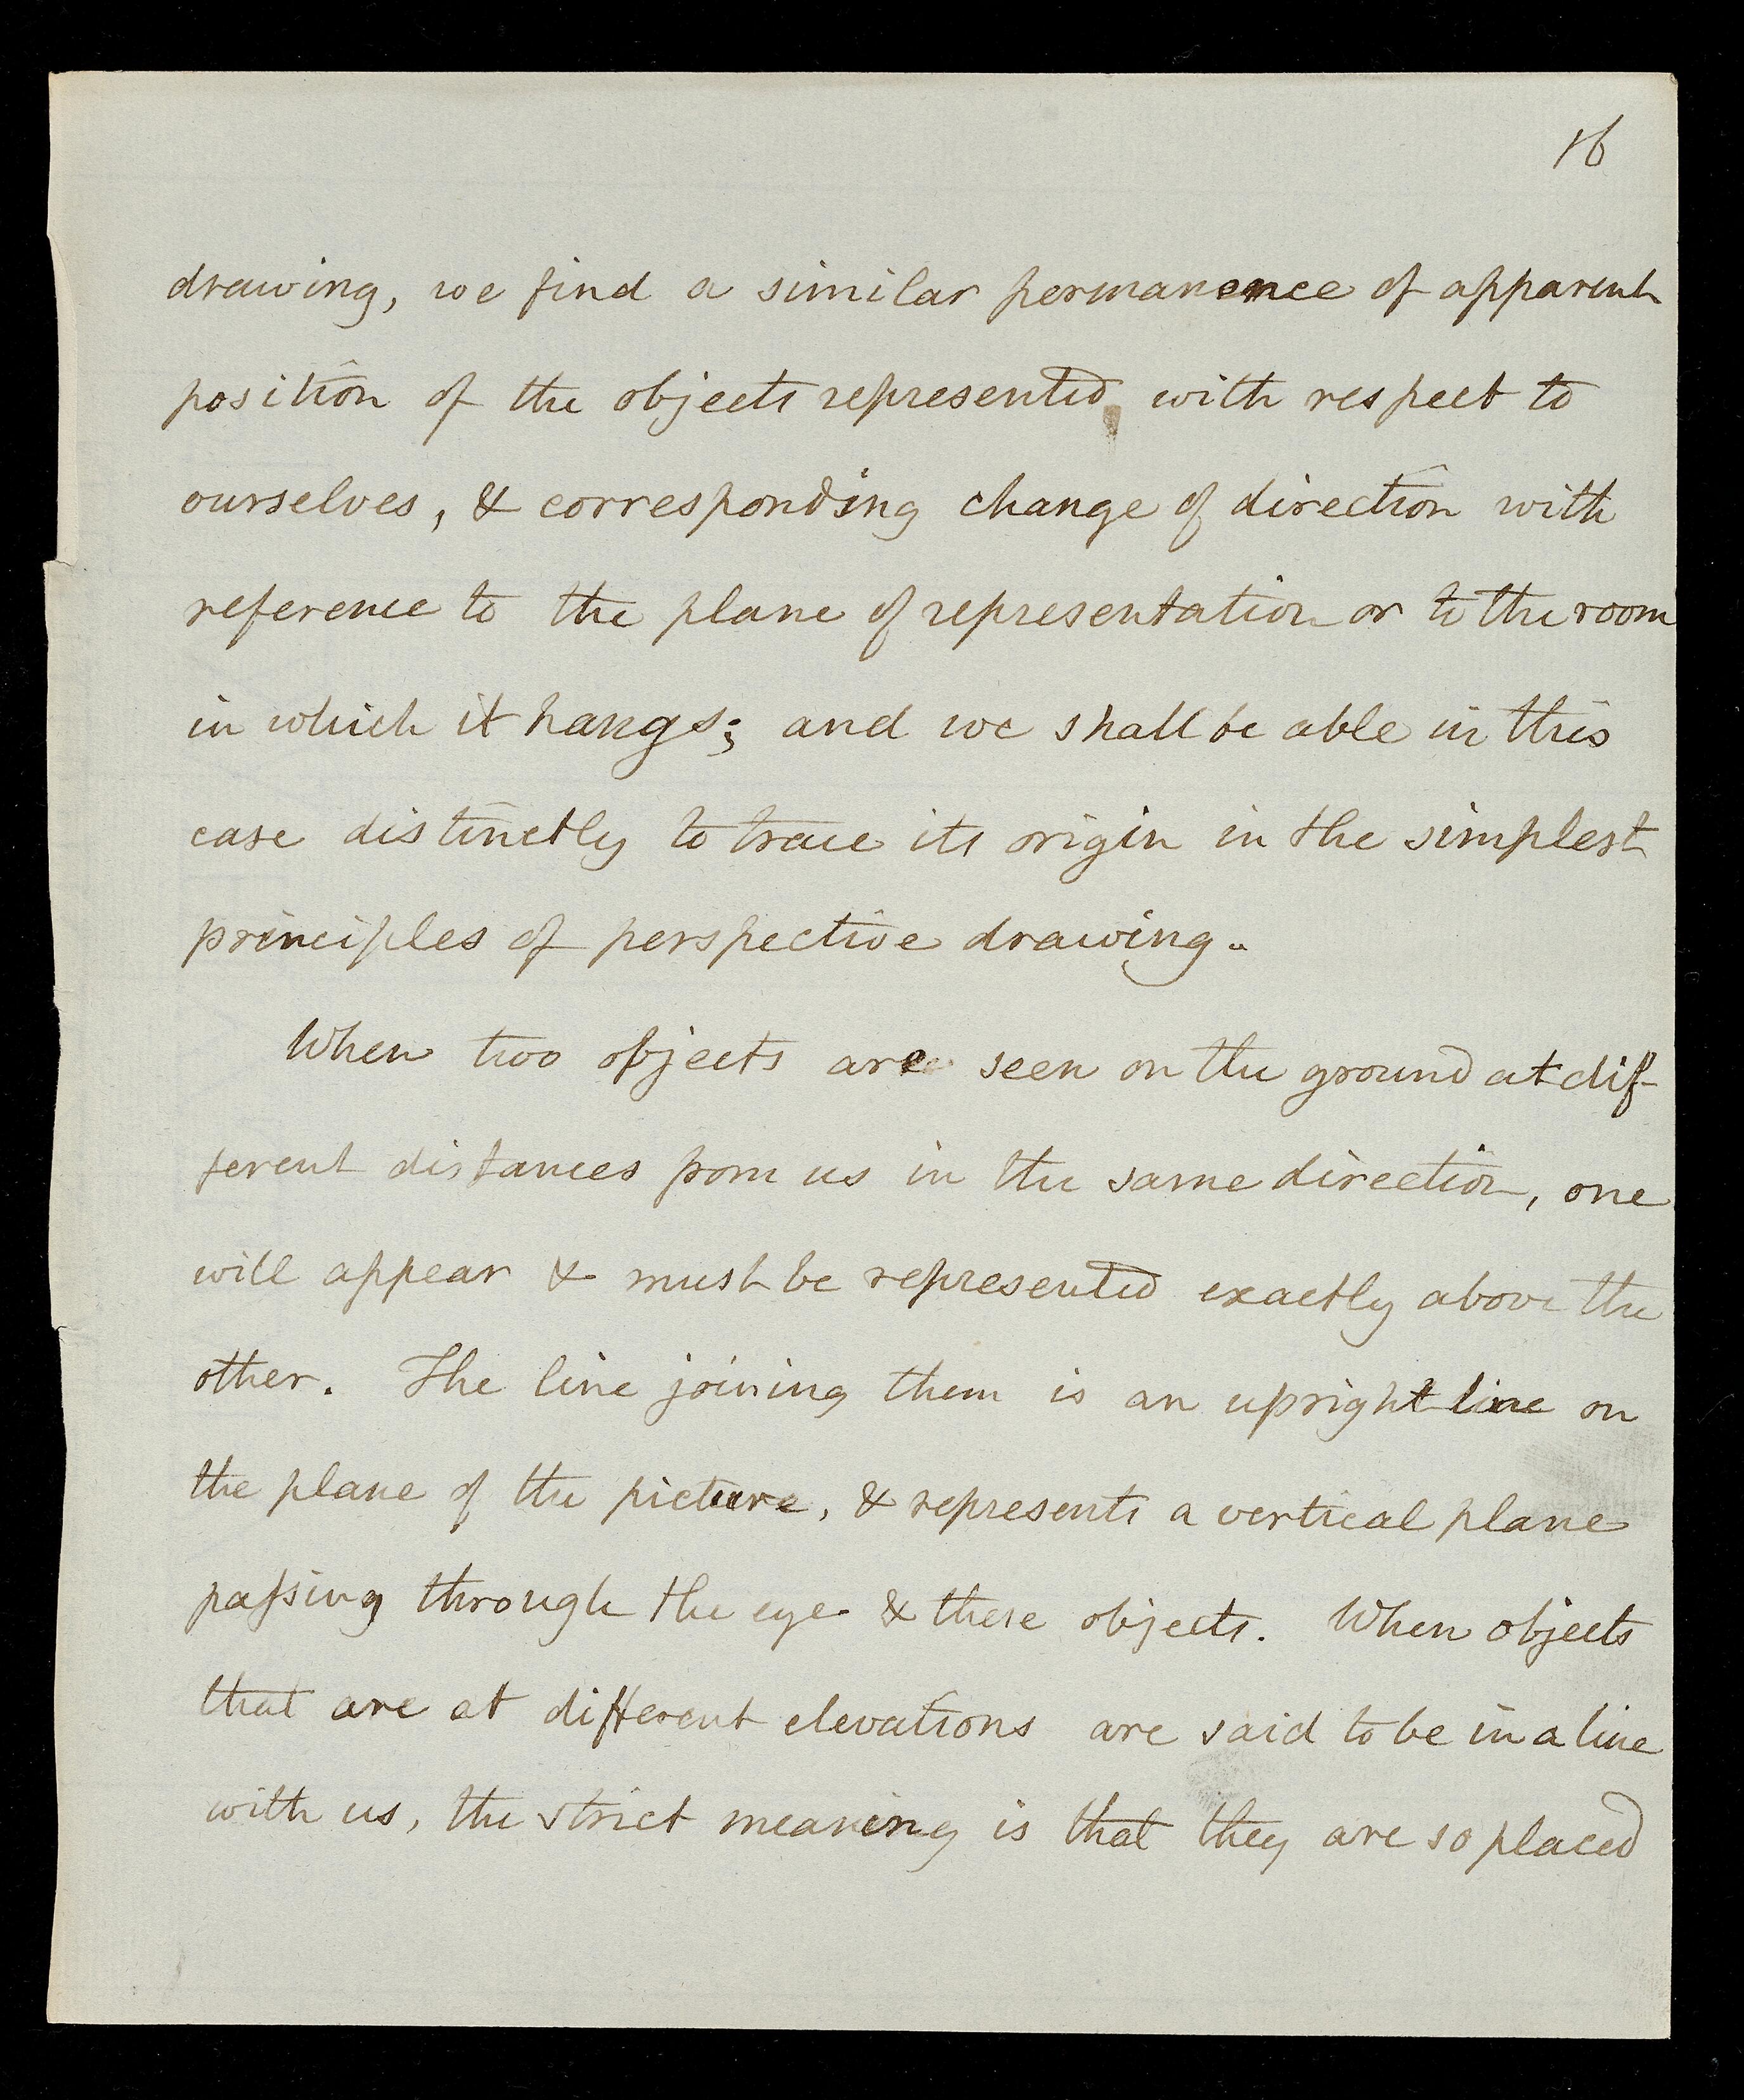 16
drawing, we find a similar permanence of apparent
position of the objects represented with respect to
ourselves, & corresponding change of direction with
reference to the plane of representation or to the room
in which it hangs; and we shall be able in this
case distinctly to trace its origin in the simplest
principles of perspective drawing.
When two objects are seen on the ground at dif-
ferent distances from us in the same direction, one
will appear & must be represented exactly above the
other. The line joining them is an upright line on
the plane of the picture, & represents a vertical plane
passing through the eye & these objects. When objects
that are at different elevations are said to be in a line
with us, the strict meaning is that they are so placed